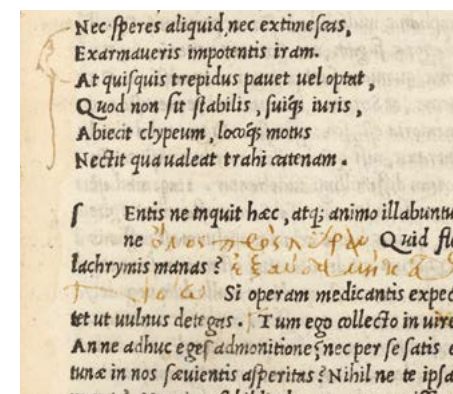 Nec ſperes aliquid, nec extimeſcas,
Exarmaueris impotentis iram.
At quiſquis trepidus pauet uel optat,
Quod non ſit ſtabilis, ſuiq; iuris,
Abiecit clypeum, locoq; motus
Nectit qua ualeat trahi catenam.
ſ Entis ne inquit hæc, atq; animo illabuntu
ne ὄνος πρὸς λύραν Quid fl
lachrymis manas?
Si operam medicantis expec
tet ut uulnus detegas. Tum ego collecto in uire
An ne adhuc eget admonitione, nec per ſe ſatis e
tunæ in nos ſæuientis aſperitas? Nihil ne te ipſa